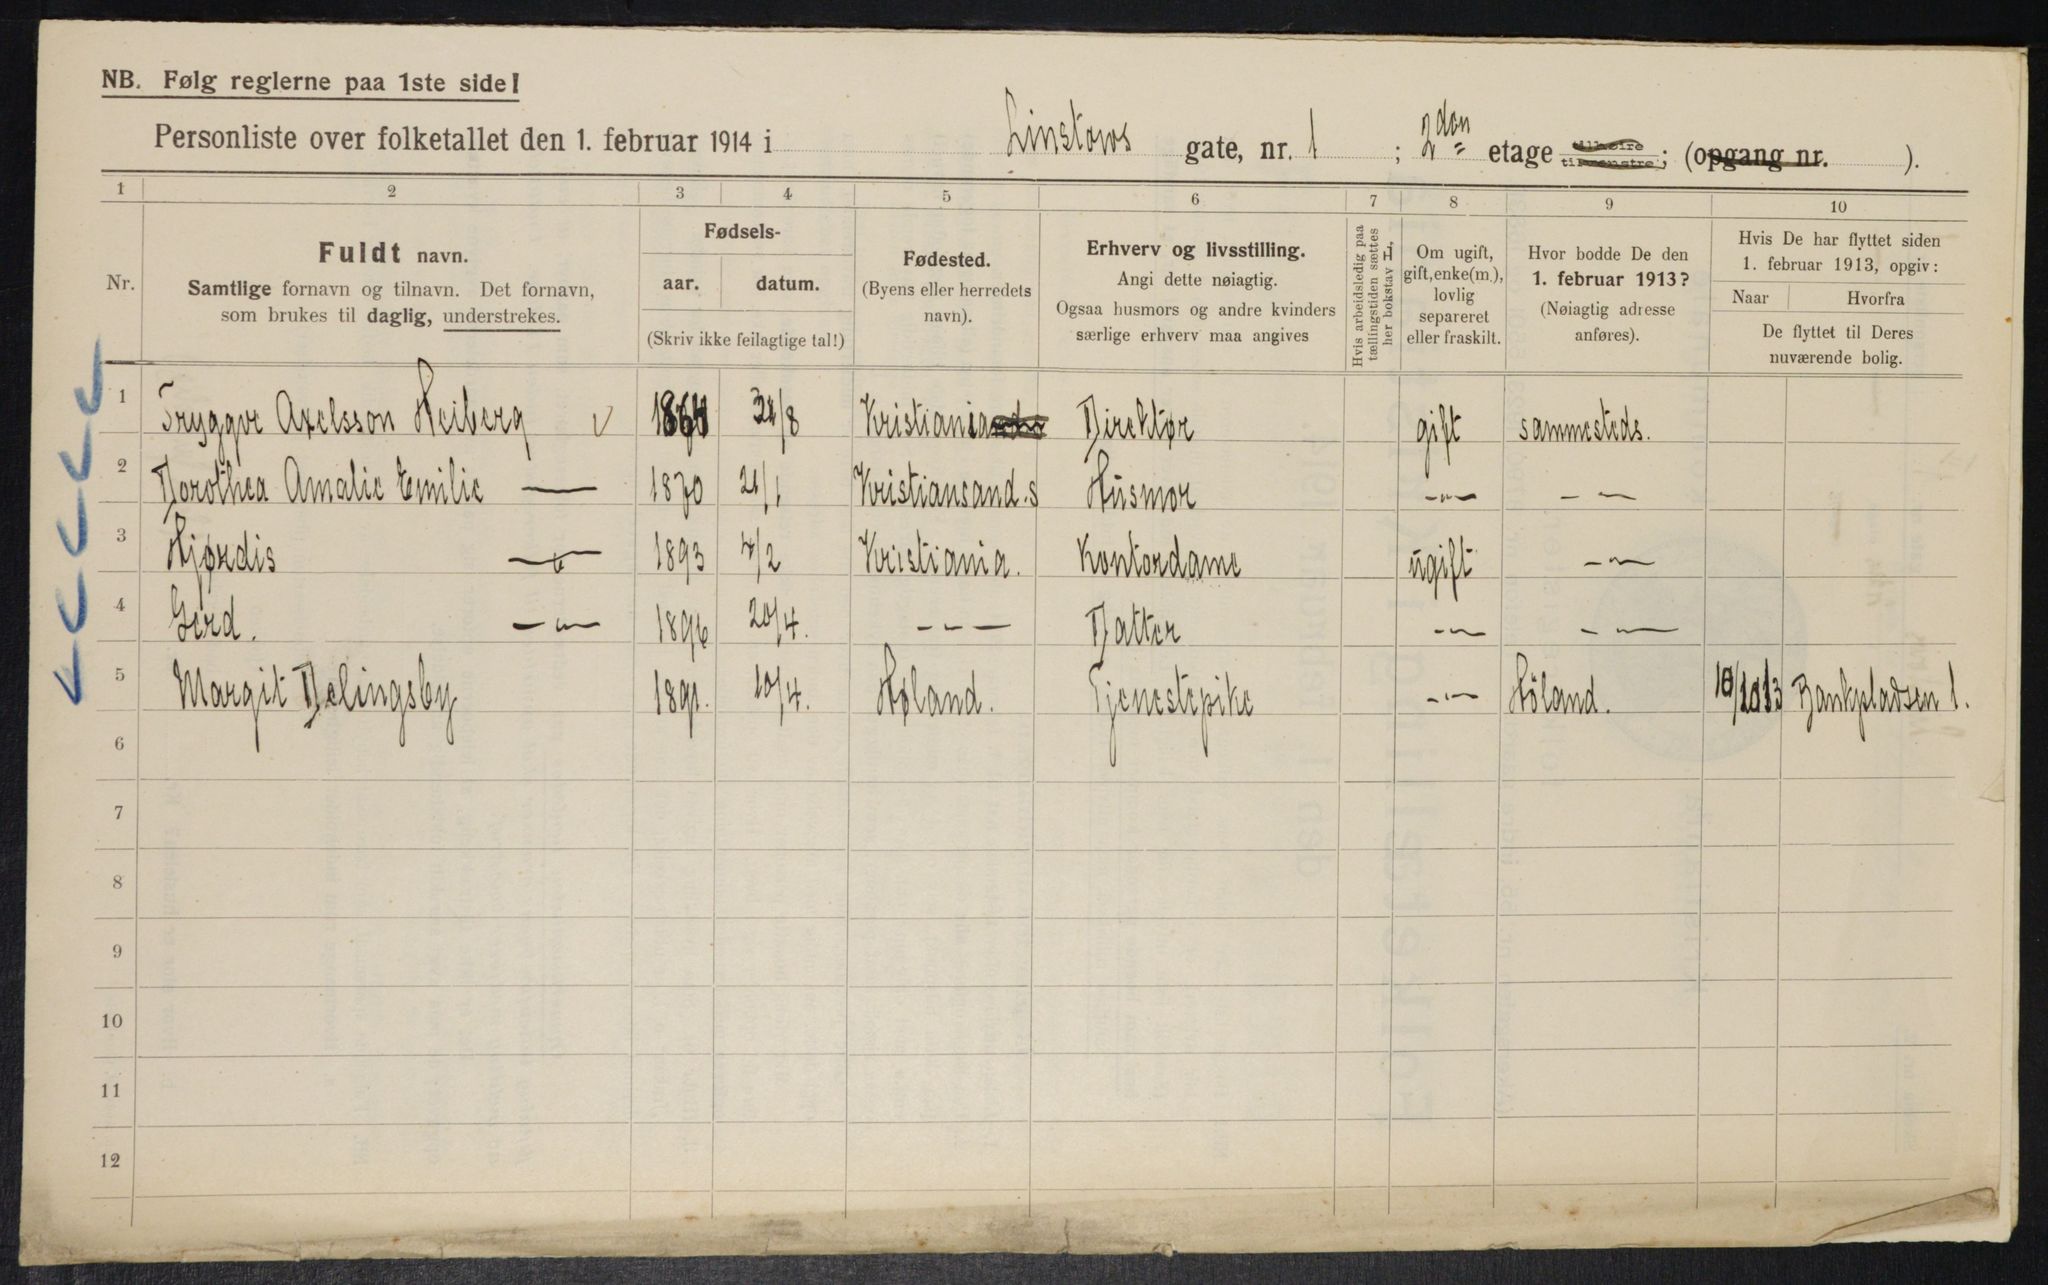 NB. Følg reglerne paa 1ste side!
Personliste over folketallet den 1. februar 1914 i Linstows gate, nr. 1 ; 2den etage til høire til venstre; (opgang nr. ).
1 2 3 4 5 6 7 8 9 10
Nr.
Fuldt navn.
Samtlige fornavn og tilnavn. Det fornavn,
som brukes til daglig, understrekes.
Fødsels-
aar. datum.
(Skriv ikke feilagtige tal!)
Fødested.
(Byens eller herredets
navn).
Erhverv og livsstilling.
Angi dette nøiagtig.
Ogsaa husmors og andre kvinders
særlige erhverv maa angives
Hvis arbeidsledig paa
tællingstiden sættes
her bokstav L,
Om ugift,
gift, enke(m.),
lovlig
separeret
eller fraskilt.
Hvor bodde De den
1. februar 1913?
(Nøiagtig adresse
anføres).
Hvis De har flyttet siden
1. februar 1913, opgiv:
Naar Hvorfra
De flyttet til Deres
nuværende bolig.
1 Tryggve Axelsson Heiberg v Kristiania Direktør gift sammesteds.
2 Dorothea Amalie Emilie — 1870 21/1 Kristiansand. S Husmor -"- -"-
3 Hjørdis -"- 1893 4/2 Kristiania. Kontordame ugift -"-
4 Gerd. -"- 1896 20/4. --- Datter -"- -"-
5 Margit Delingsby 1891. 10/4. Høland. Tjenestepike -"- Høland. 10/10 13 Bankpladsen 1.
6
7
8
9
10
11
12